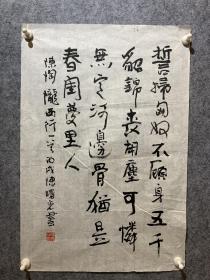 誓掃匈奴不顧身五千
貂錦喪胡塵可憐
無定河邊骨猶是
春閨夢里人
陳陶隴西行一首丙戌